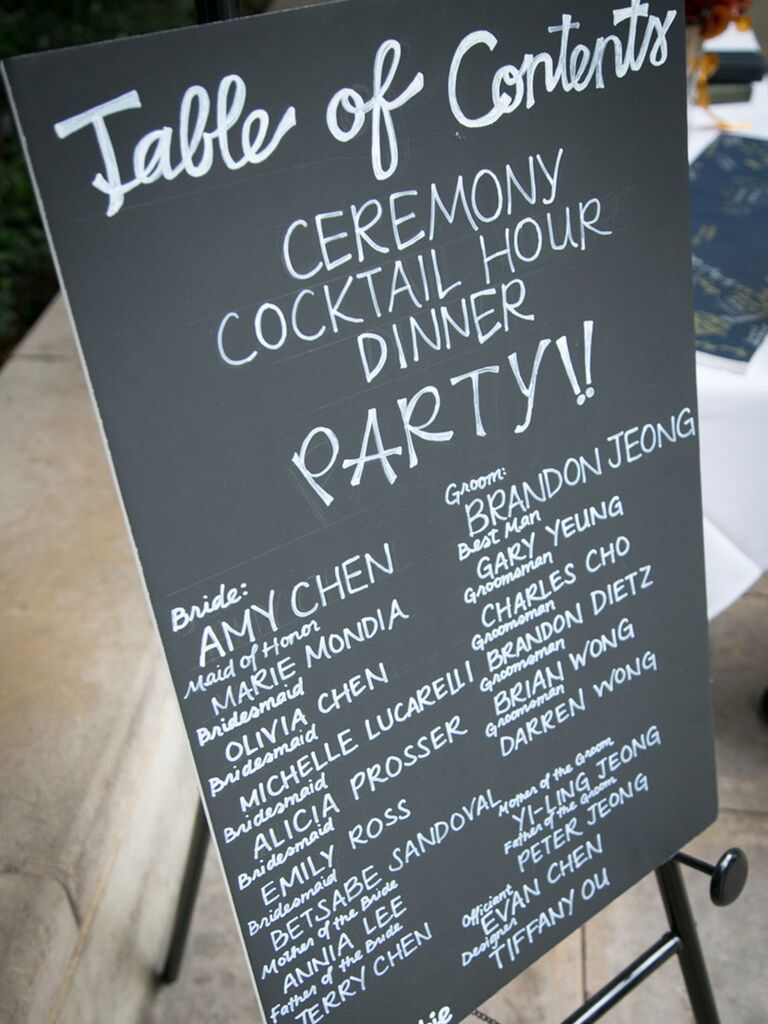 Table of Contents
CEREMONY
COCKTAIL HOUR
DINNER
PARTY!!
Bride:
AMY CHEN
Maid of Honor
MARIE MONDIA
Bridesmaid
OLIVIA CHEN
Bridesmaid
MICHELLE LUCARELLI
Bridesmaid
ALICIA PROSSER
Bridesmaid
EMILY ROSS
Bridesmaid
BETSABE SANDOVAL
Mother of the Bride
ANNIA LEE
Father of the Bride
TERRY CHEN
Groom:
BRANDON JEONG
Best Man
GARY YEUNG
Groomsman
CHARLES CHO
Groomsman
BRANDON DIETZ
Groomsman
BRIAN WONG
Groomsman
DARREN WONG
Mother of the Groom
YI-LING JEONG
Father of the Groom
PETER JEONG
Officiant
EVAN CHEN
Designer
TIFFANY OU